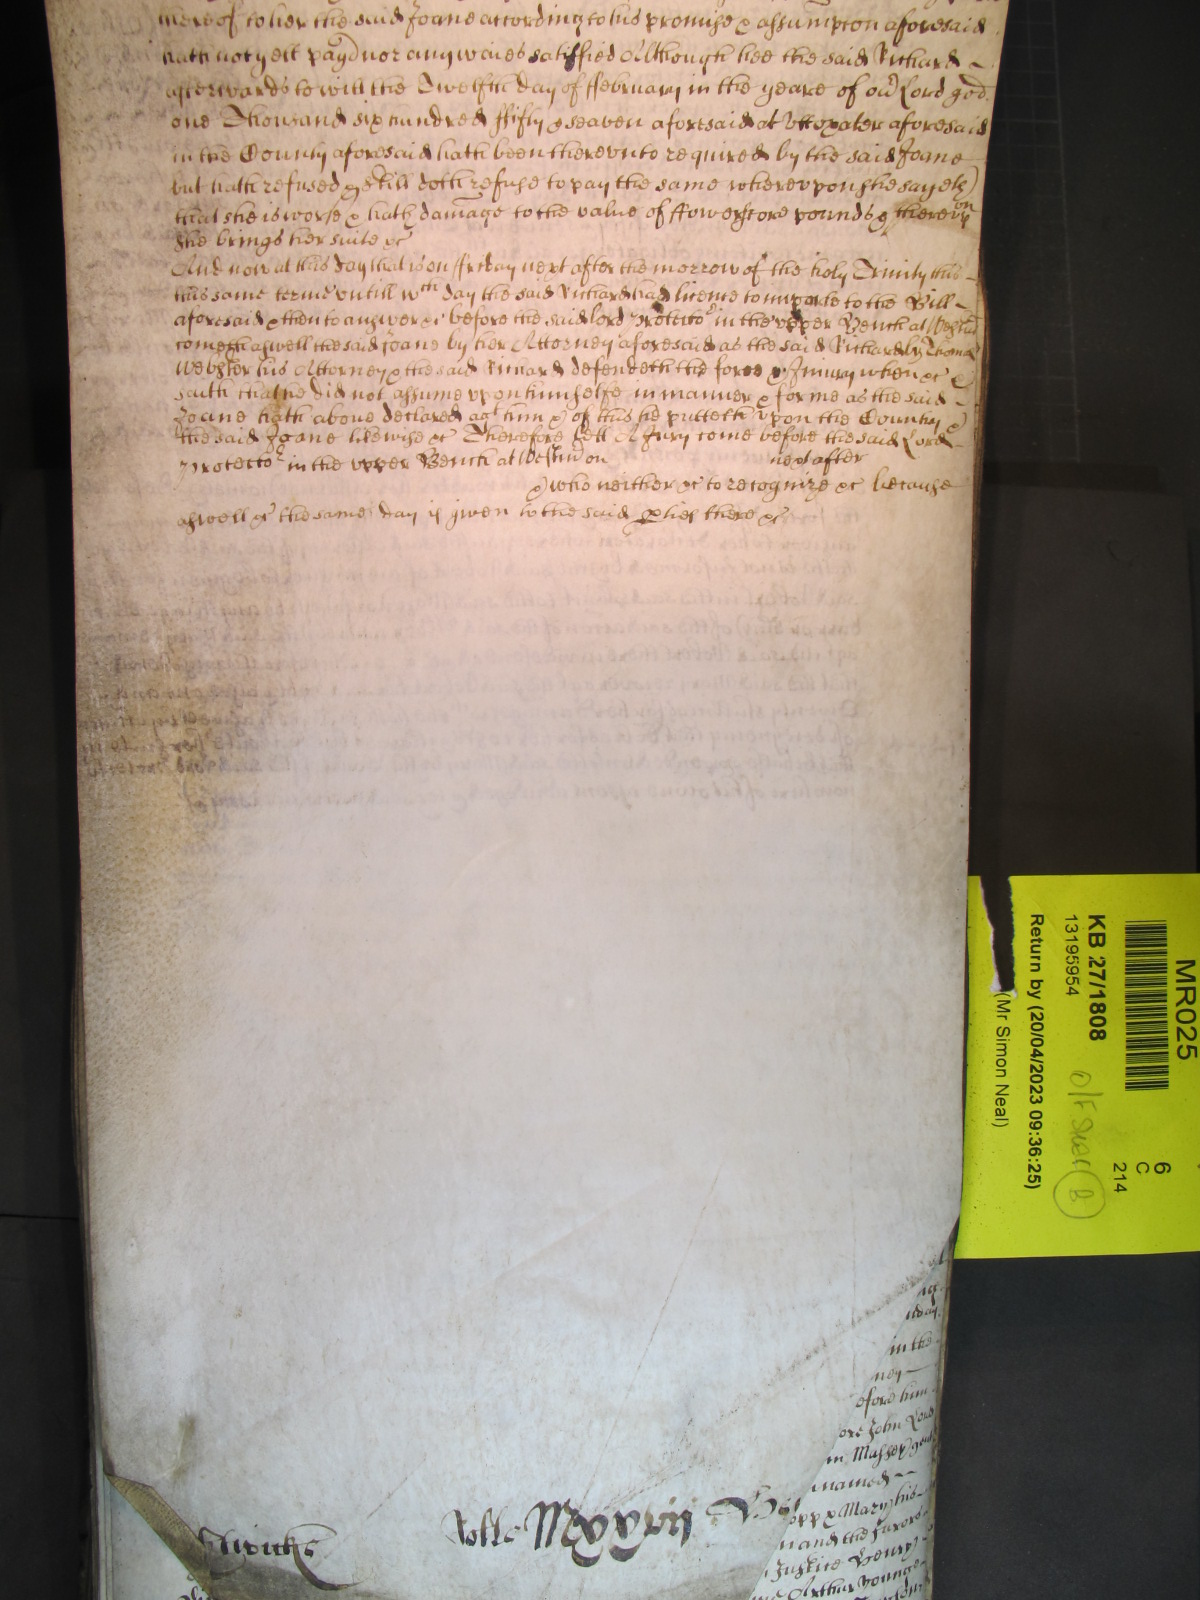 thereof to her the said Joane according to his promise & assumpton aforesaid
hath not yett payd nor any waies satisfied Although hee the said Richard
afterwards to witt the Twelfth day of ffebruary in the yeare of our Lord god
one Thousand six hundred ffifty & seaven aforesaid at Uttoxater aforesaid
in the County aforesaid hath been thereunto required by the said Joane
but hath refused & still doth refuse to pay the same whereupon she sayeth
that she is worse & hath damage to the value of ffowerscore pounds & thereupon
she brings her suite &c
And now at this day that is on ffriday next after the morrow of the holy Trinity this
this same terme untill wch day the said Richard had licence to imparle to the Bill
aforesaid & then to answer &c before the said lord Protector in the upper Bench at Westmr
cometh aswell the said Joane by her Attorney aforesaid as the said Richard by Thomas
Webster his Attorney & the said Richard defendeth the force & Iniury when &c &
saith that he did not assume upon himselfe in manner & forme as the said
Joane hath above declared agt him & of this he putteth upon the Country &
the said Joane likewise &c Therefore lett A Jury come before the said Lord
Protector in the upper Bench at Westmr on next after
& who neither &c to recognize &c because
aswell &c the same day is given to the said pties there &c
in the
ney
efore him
ore John Lord
in Massey gent
named
opp & Mary his
and the ffavors
Justice Henry
Arthur Younge
Rolle
MR025
KB 27/1808
13195954
Return by (20/04/2023 09:36:25)
(Mr Simon Neal)
6
C
214
B